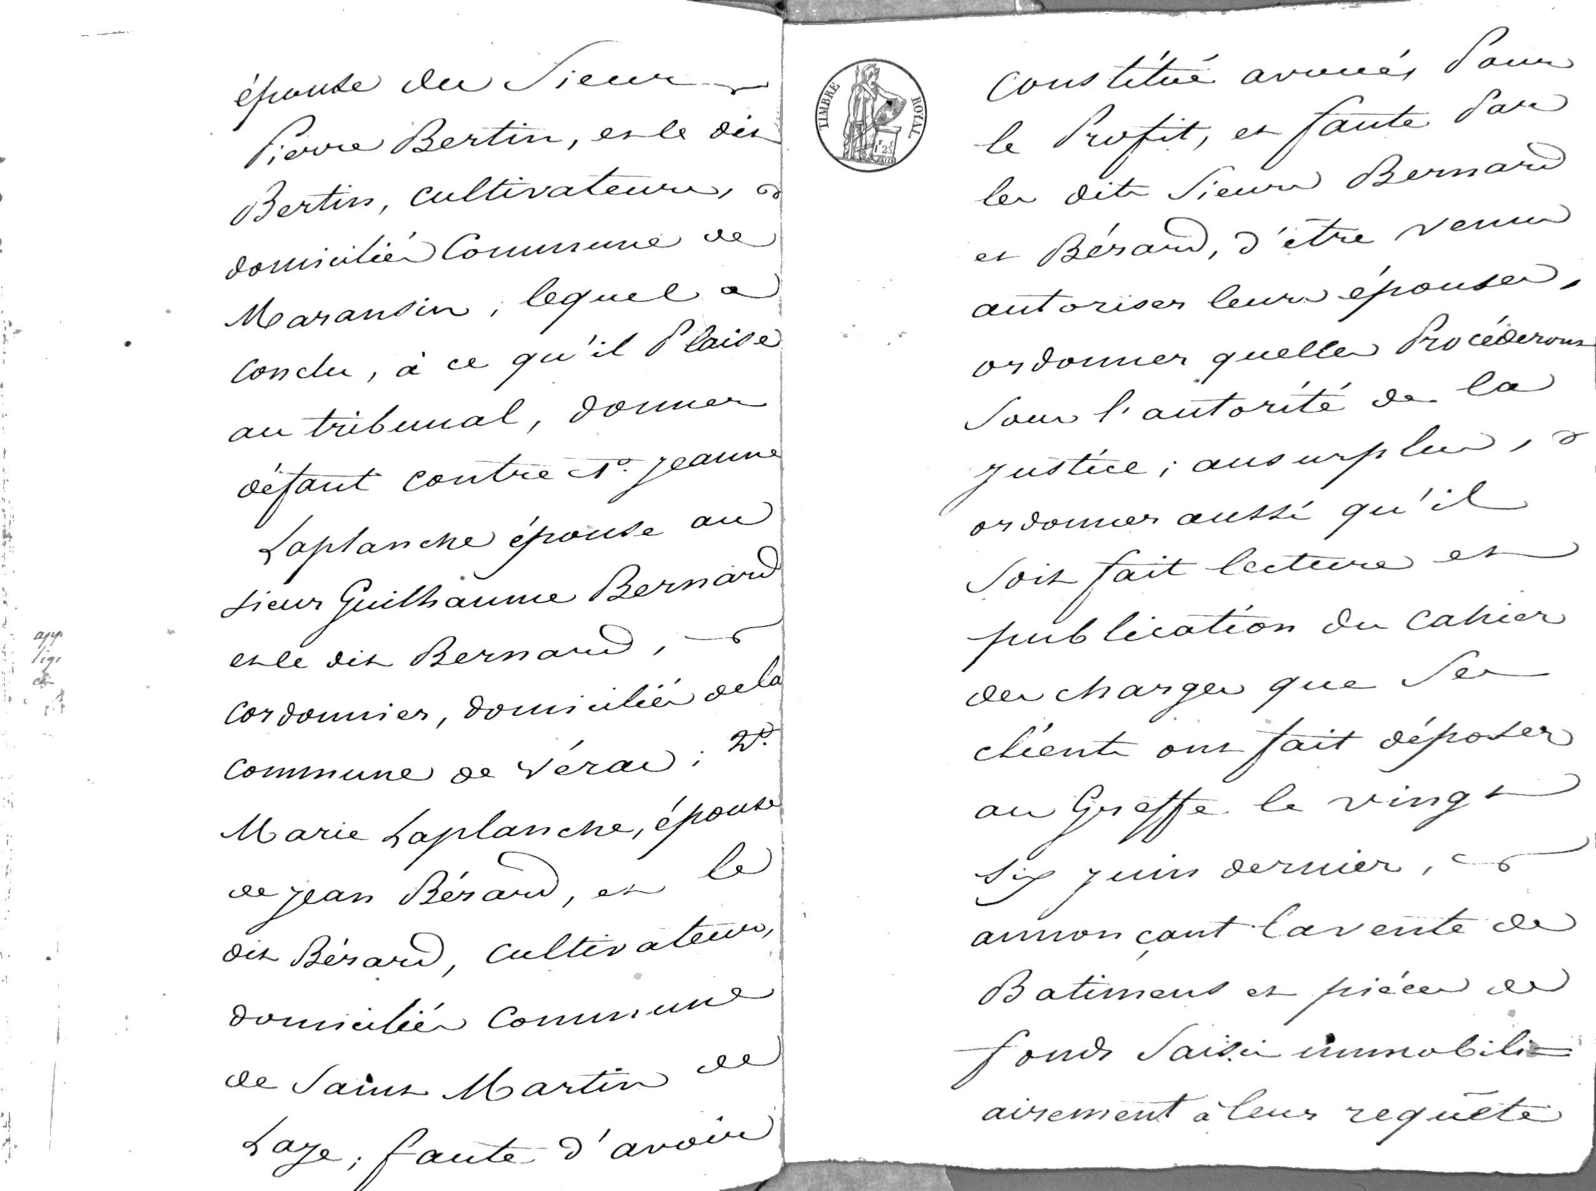 épouse du Sieur
Pierre Bertin, et le dit
Bertin, cultivateurs,
domiciliés Commune de
Maransin, lequel a
conclu, à ce qu'il Plaise
au tribunal, donner
défaut contre 1º. Jeanne
Laplanche épouse au
sieur Guilhaume Bernard
et le dit Bernard,
cordonnier, domiciliés de la
commune de Vérac; 2º.
Marie Laplanche, épouse
de Jean Bérard, et le
dit Bérard, cultivateurs,
domiciliés Commune
de Saint Martin de
Laye; faute d'avoir
TIMBRE ROYAL
constitué avoués Pour
le Profit, et faute Par
les dits Sieurs Bernard
et Bérard, d'être venus
autoriser leurs épouses,
ordonner quelles Procéderont
Sous l'autorité de la
Justice; ausurplus,
ordonner aussi qu'il
Soit fait lecture et
publication du cahier
des charges que Ses
clients ont fait déposer
au Greffe le vingt
six juin dernier,
annonçant la vente de
Batimens et pièces de
fonds Saisis immobili=
airement à leur requête